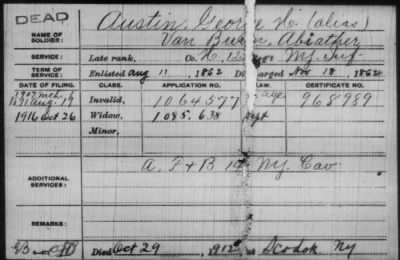 DEAD
Austin George H. (alias)
NAME OF SOLDIER: Van Buren, Abiather
SERVICE: Late rank, Co. H, Reg't Inf.
TERM OF SERVICE: Enlisted Aug 11, 1862 Discharged Nov 18, 186
DATE OF FILING. CLASS. APPLICATION NO. LAW. CERTIFICATE NO.
1907 Mch
1891 Aug. 19 Invalid, 1064577 Age 968989
1916 Oct 26 Widow, 1085.638
Minor,
A, F & B Ny. Cav
ADDITIONAL SERVICES:
REMARKS:
Died Oct 29, 191 at Scodok Ny